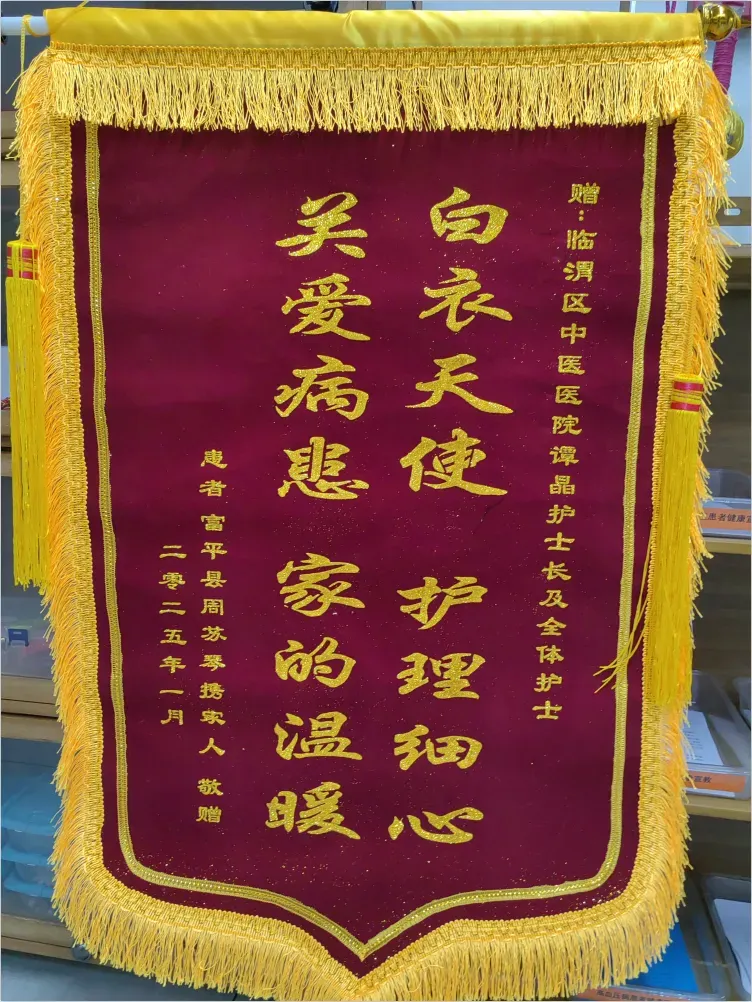 赠：临渭区中医医院谭晶护士长及全体护士
白衣天使 护理细心
关爱病患 家的温暖
患者富平县周苏琴携家人 敬赠
二零二五年一月
患者健康
宣教